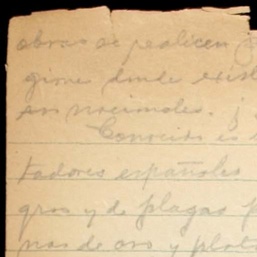 obras se realicen
gime donde exist
en nacionales. ¡
Conocido es
tadores españoles
gros y de plagas p
nas de oro y plat